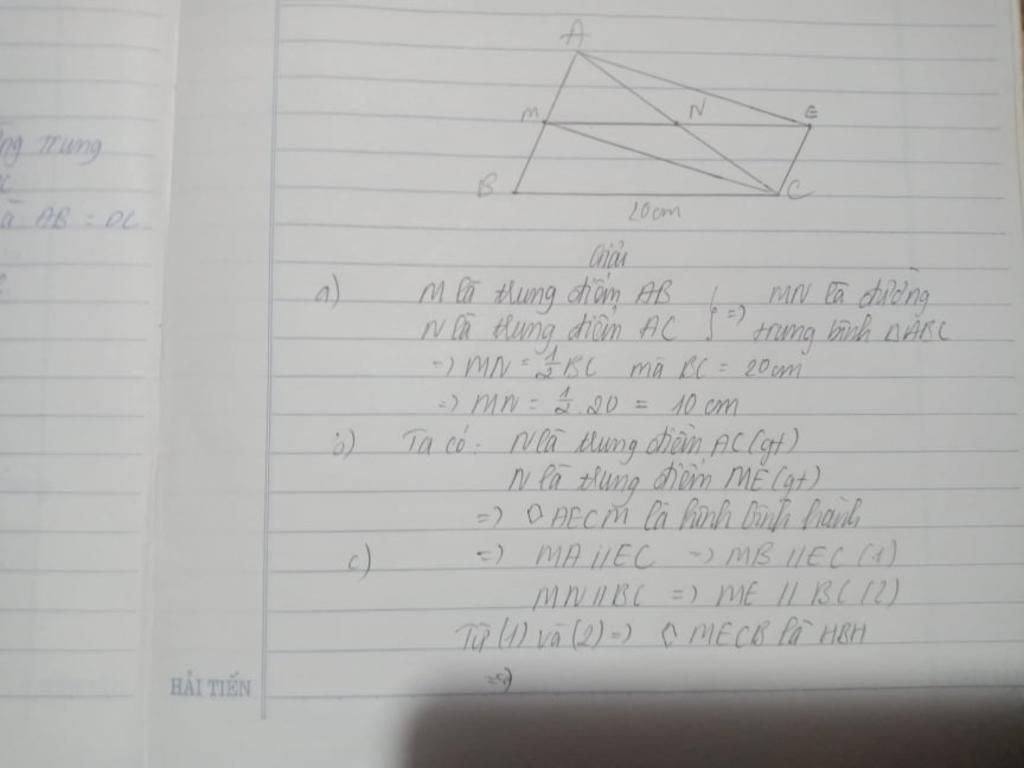 ng trung
AB = DC
A
M
N
E
B
C
20cm
Giải
a) M là trung điểm AB } => MN là đường
N là trung điểm AC trung bình △ABC
=> MN = 1/2 BC mà BC = 20cm
=> MN = 1/2 . 20 = 10 cm
b) Ta có: N là trung điểm AC (gt)
N là trung điểm ME (gt)
=> ◇ AECM là hình bình hành
c) => MA // EC => MB // EC (1)
MN // BC => ME // BC (2)
Từ (1) và (2) => ◇ MECB là HBH
=>
HẢI TIẾN